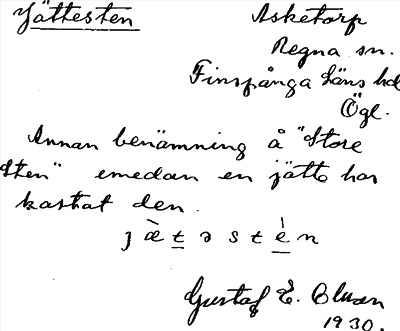 Jättesten
Asketorp
Regna sn.
Finspånga Läns hd
Ögl.
Annan benämning å "Store
Sten" emedan en jätte har
kastat den.
j æ̀ t ə s t é n
Gustaf E.
1930.